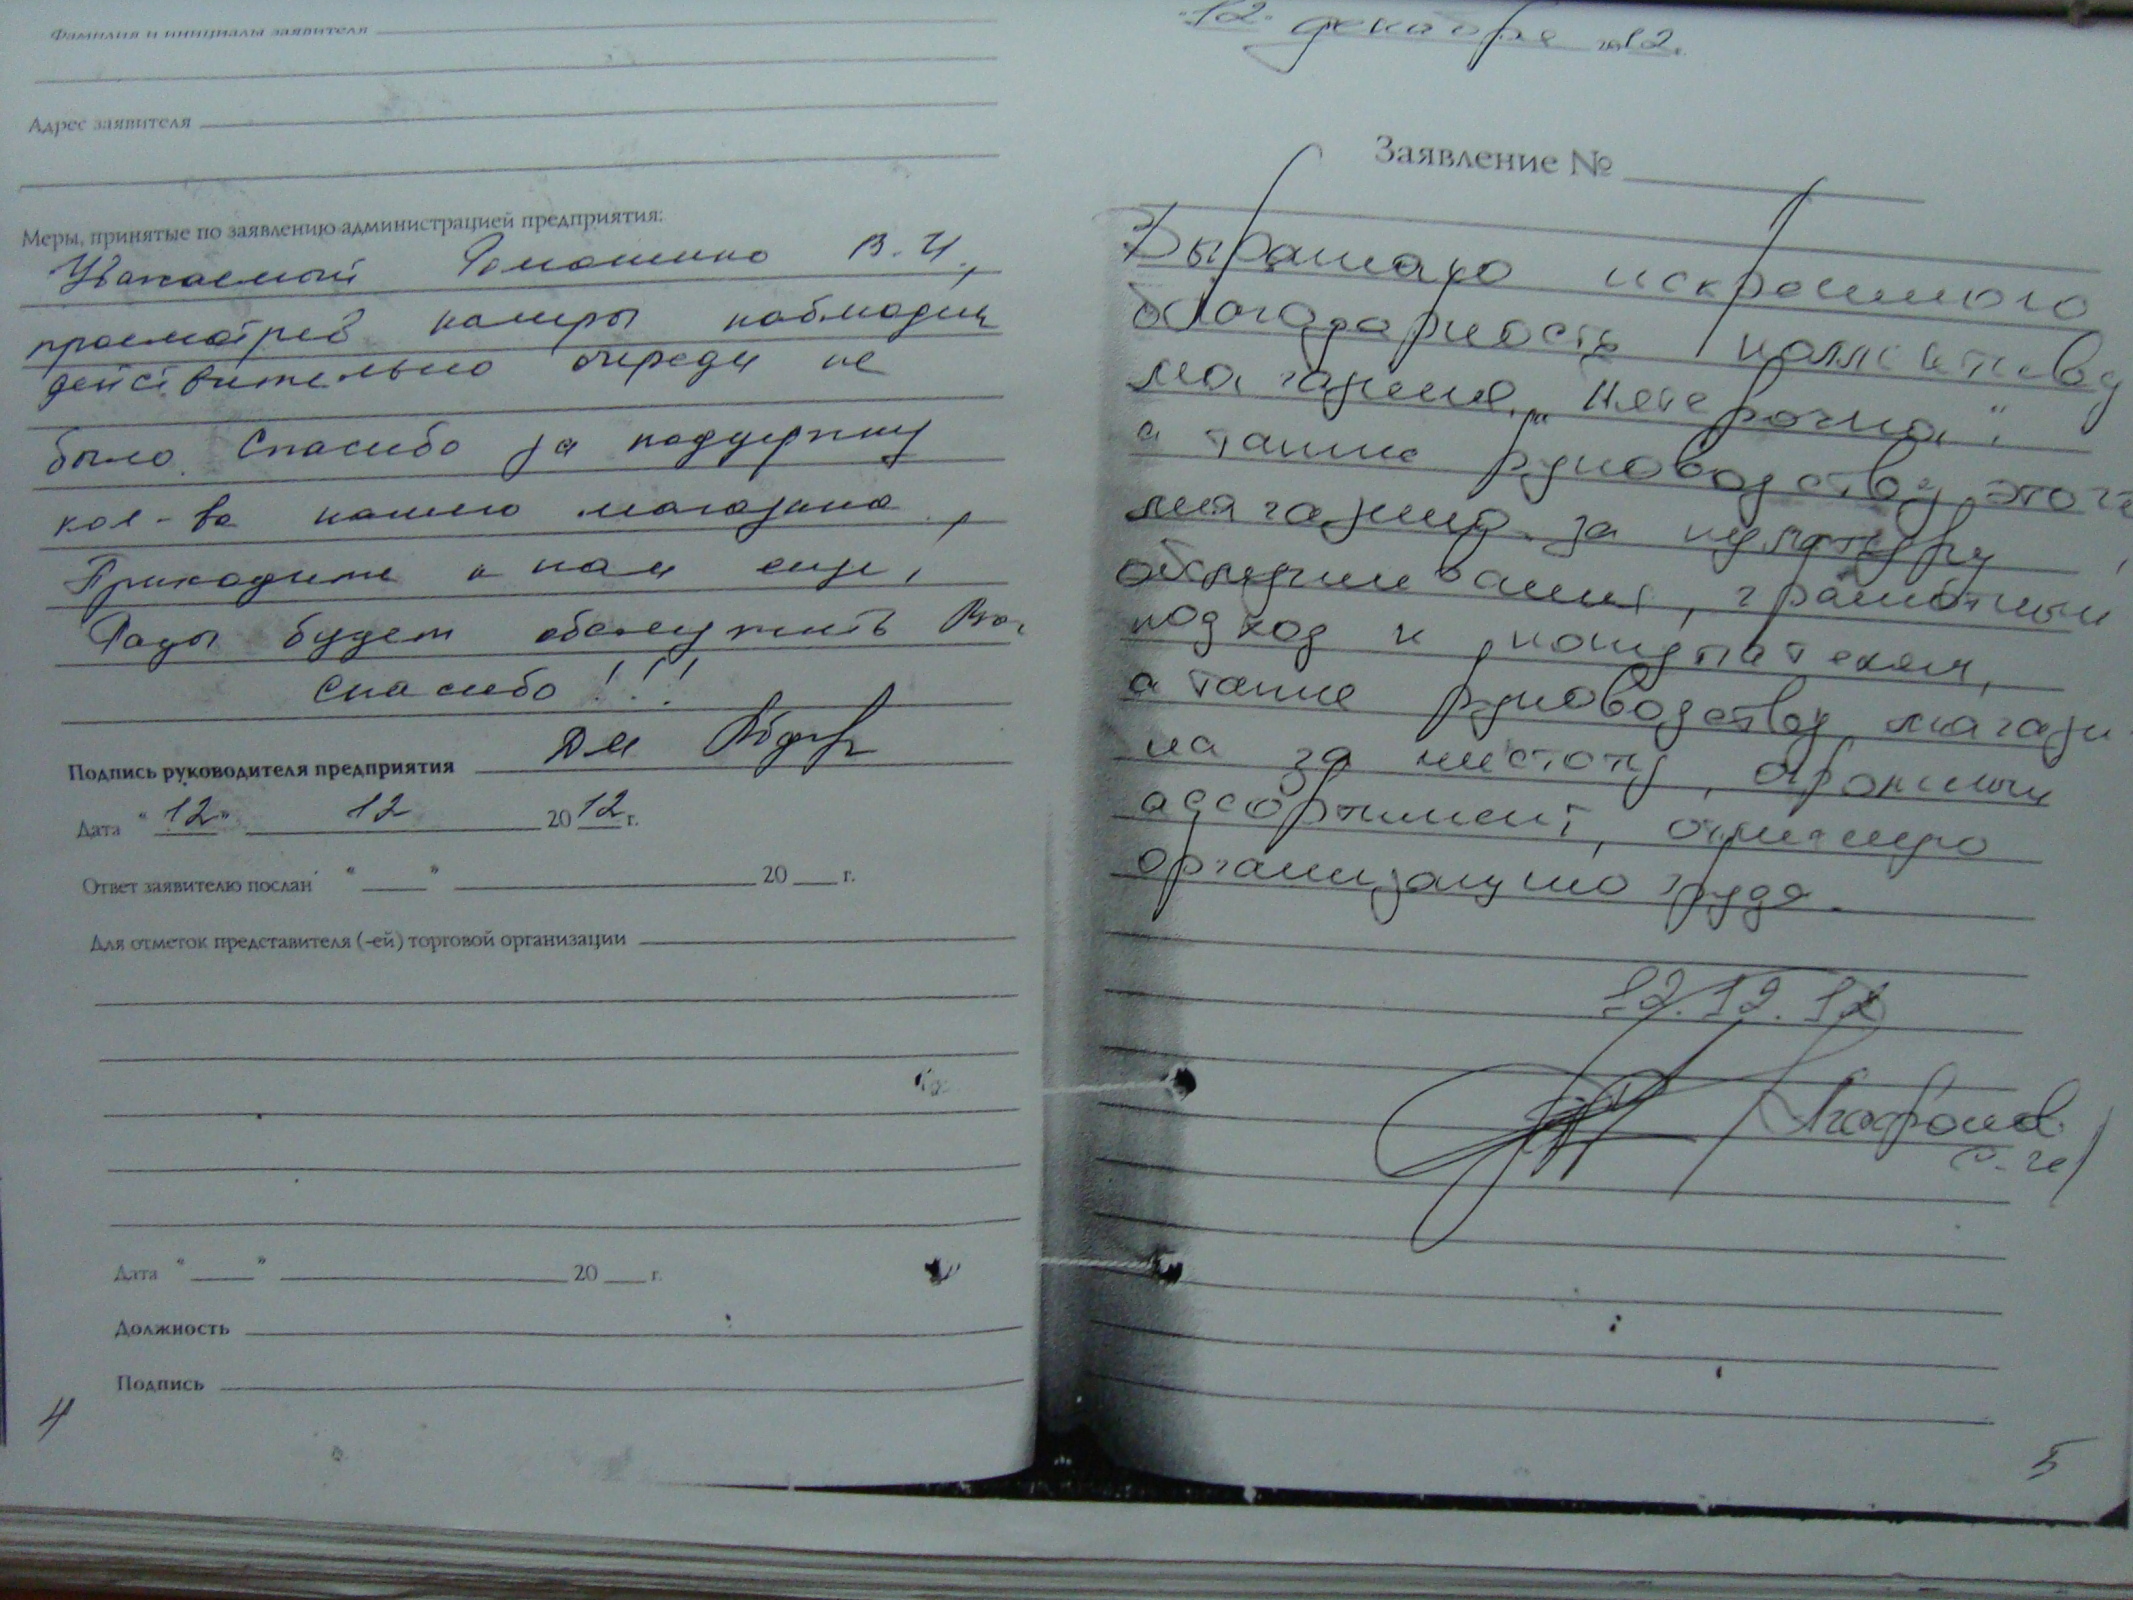 Фамилия и инициалы заявителя
Адрес заявителя
Меры, принятые по заявлению администрацией предприятия:
Уважаемый В. И.,
просмотрев камеры наблюдния
действительно очереди не
было. Спасибо за поддержку
кол-ва нашего магазина,
Приходите к нам еще,
Рады будем обслужить Вас,
Спасибо!!!
Подпись руководителя предприятия ДМ
Дата "12" 12 2012 г.
Ответ заявителю послан " " 20 г.
Для отметок представителя (-ей) торговой организации
Дата " " 20 г.
Должность
Подпись
4
"12" декабря 2012.
Заявление №
Выражаю искреннюю
благодарность коллективу
магазина "Пятерочка",
а также руководству этого
магазина за культуру
обслуживания, грамотный
подход к покупателям,
а также руководству магази-
на за чистоту, огромный
ассортимент, отличную
организацию труда.
12.12.12
Агафонов
5